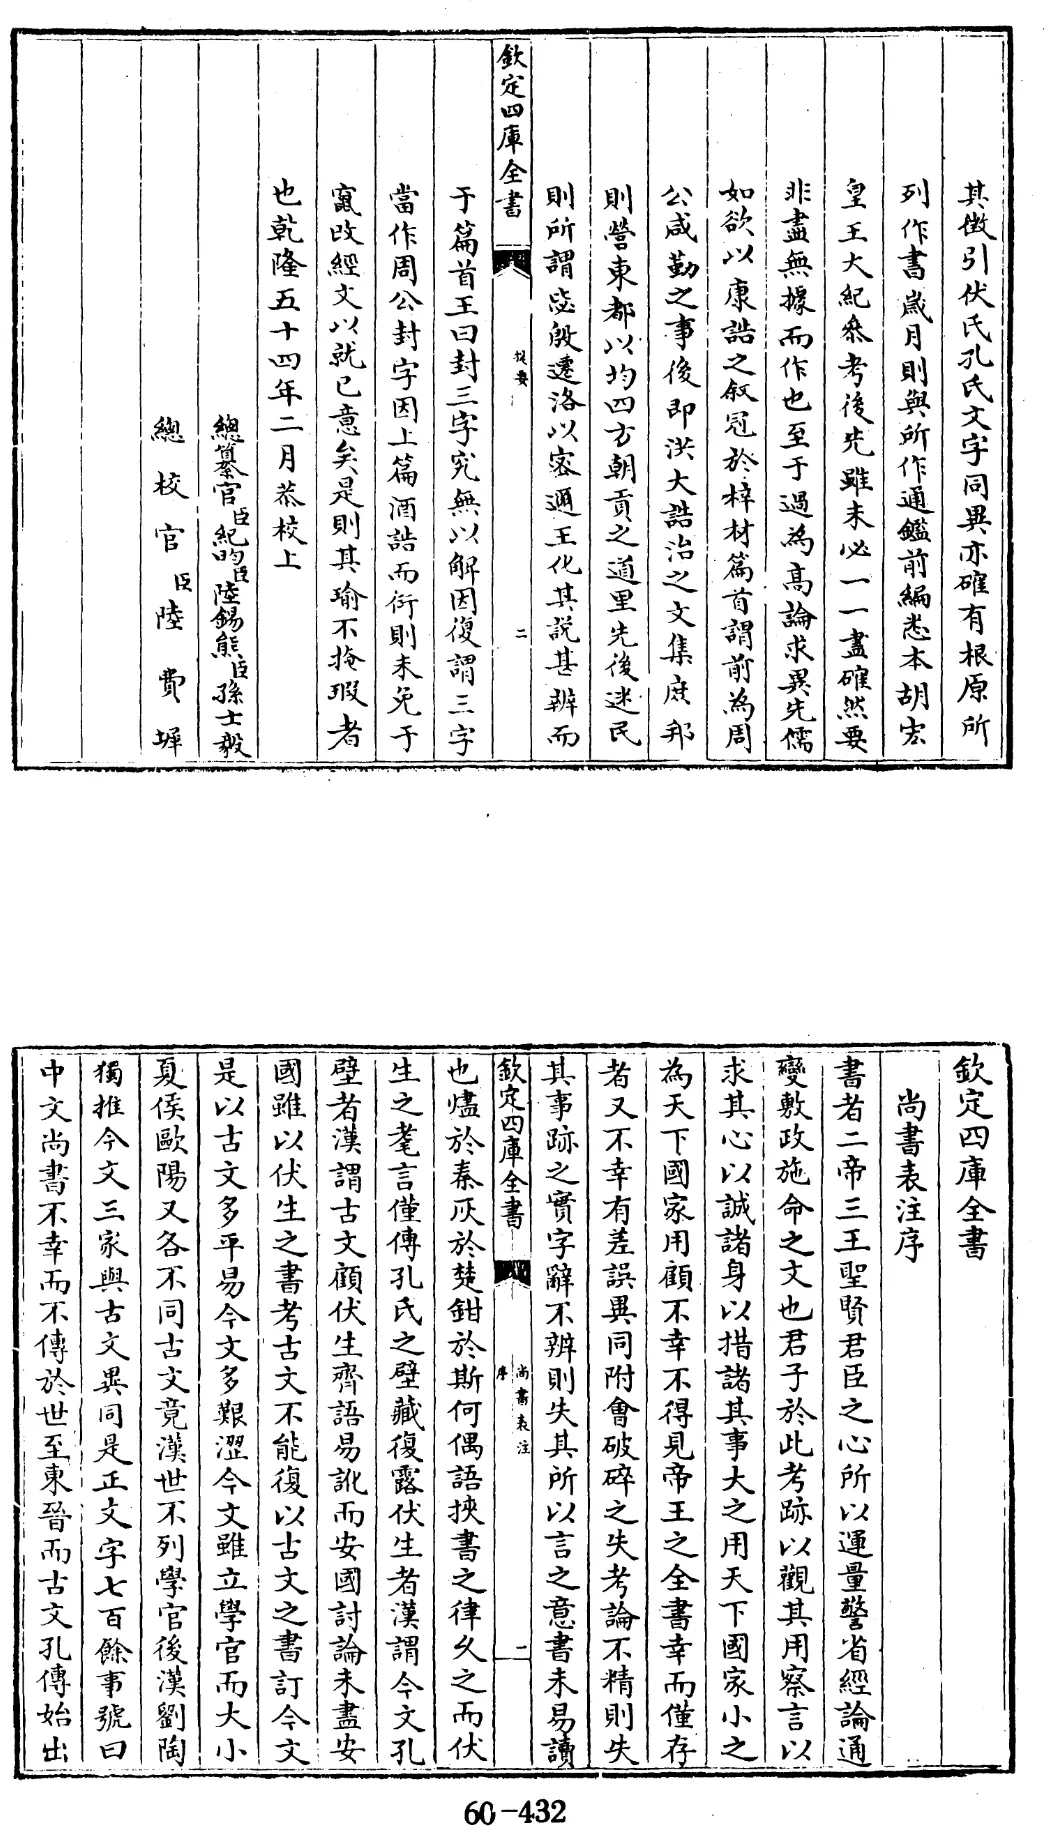 其徴引伏氏孔氏文字同異亦確有根原所
列作書嵗月則與所作通鑑前編悉本胡宏
皇王大紀叅考後先雖未必一一盡確然要
非盡無據而作也至于過為高論求異先儒
如欲以康誥之叙冠於梓材篇首謂前為周
公咸勤之事後即洪大誥治之文集庶邦
則營東都以均四方朝貢之道里先後迷民
則所謂毖殷遷洛以宻邇王化其説甚辨而
欽定四庫全書
提要
二
于篇首王曰封三字究無以解因復謂三字
當作周公封字因上篇酒誥而衍則未免于
竄改經文以就已意矣是則其瑜不掩瑕者
也乾隆五十四年二月恭校上
總纂官臣紀昀臣陸錫熊臣孫士毅
總校官臣陸費墀
欽定四庫全書
尚書表注序
書者二帝三王聖賢君臣之心所以運量警省經論通
變敷政施命之文也君子於此考跡以觀其用察言以
求其心以誠諸身以措諸其事大之用天下國家小之
為天下國家用顧不幸不得見帝王之全書幸而僅存
者又不幸有差誤異同附會破碎之失考論不精則失
其事跡之實字辭不辨則失其所以言之意書未易讀
欽定四庫全書
尚書表注
序
一
也燼於秦灰於楚鉗於斯何偶語挾書之律久之而伏
生之耄言僅傳孔氏之壁藏復露伏生者漢謂今文孔
壁者漢謂古文顧伏生齊語易訛而安國討論未盡安
國雖以伏生之書考古文不能復以古文之書訂今文
是以古文多平易今文多艱澀今文雖立學官而大小
夏侯歐陽又各不同古文竟漢世不列學官後漢劉陶
獨推今文三家與古文異同是正文字七百餘事號曰
中文尚書不幸而不傳於世至東晉而古文孔傳始出
60-432